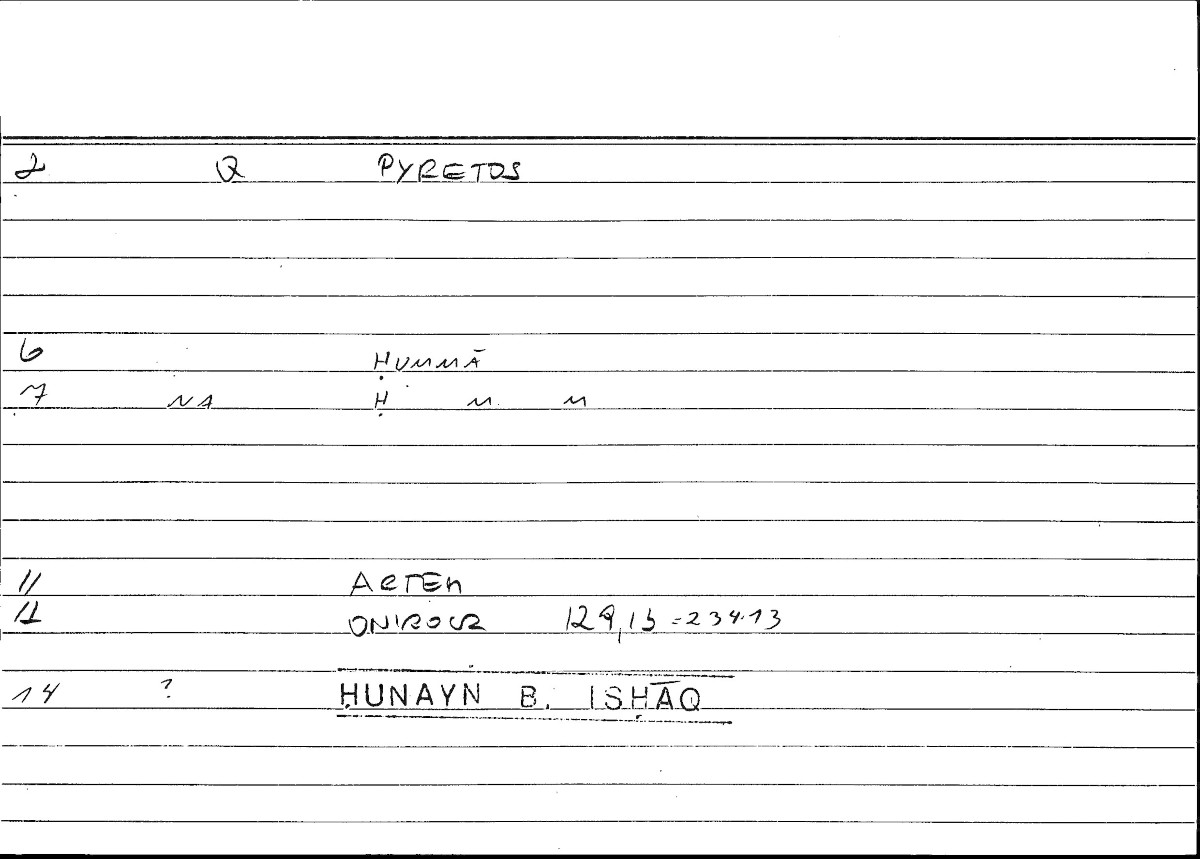 2 Q PYRETOS
6 ḤUMMĀ
7 NA Ḥ M M
11 ARTEM
12 ONIROCR 129,15 = 234.13
14 ? ḤUNAYN B. ISḤĀQ